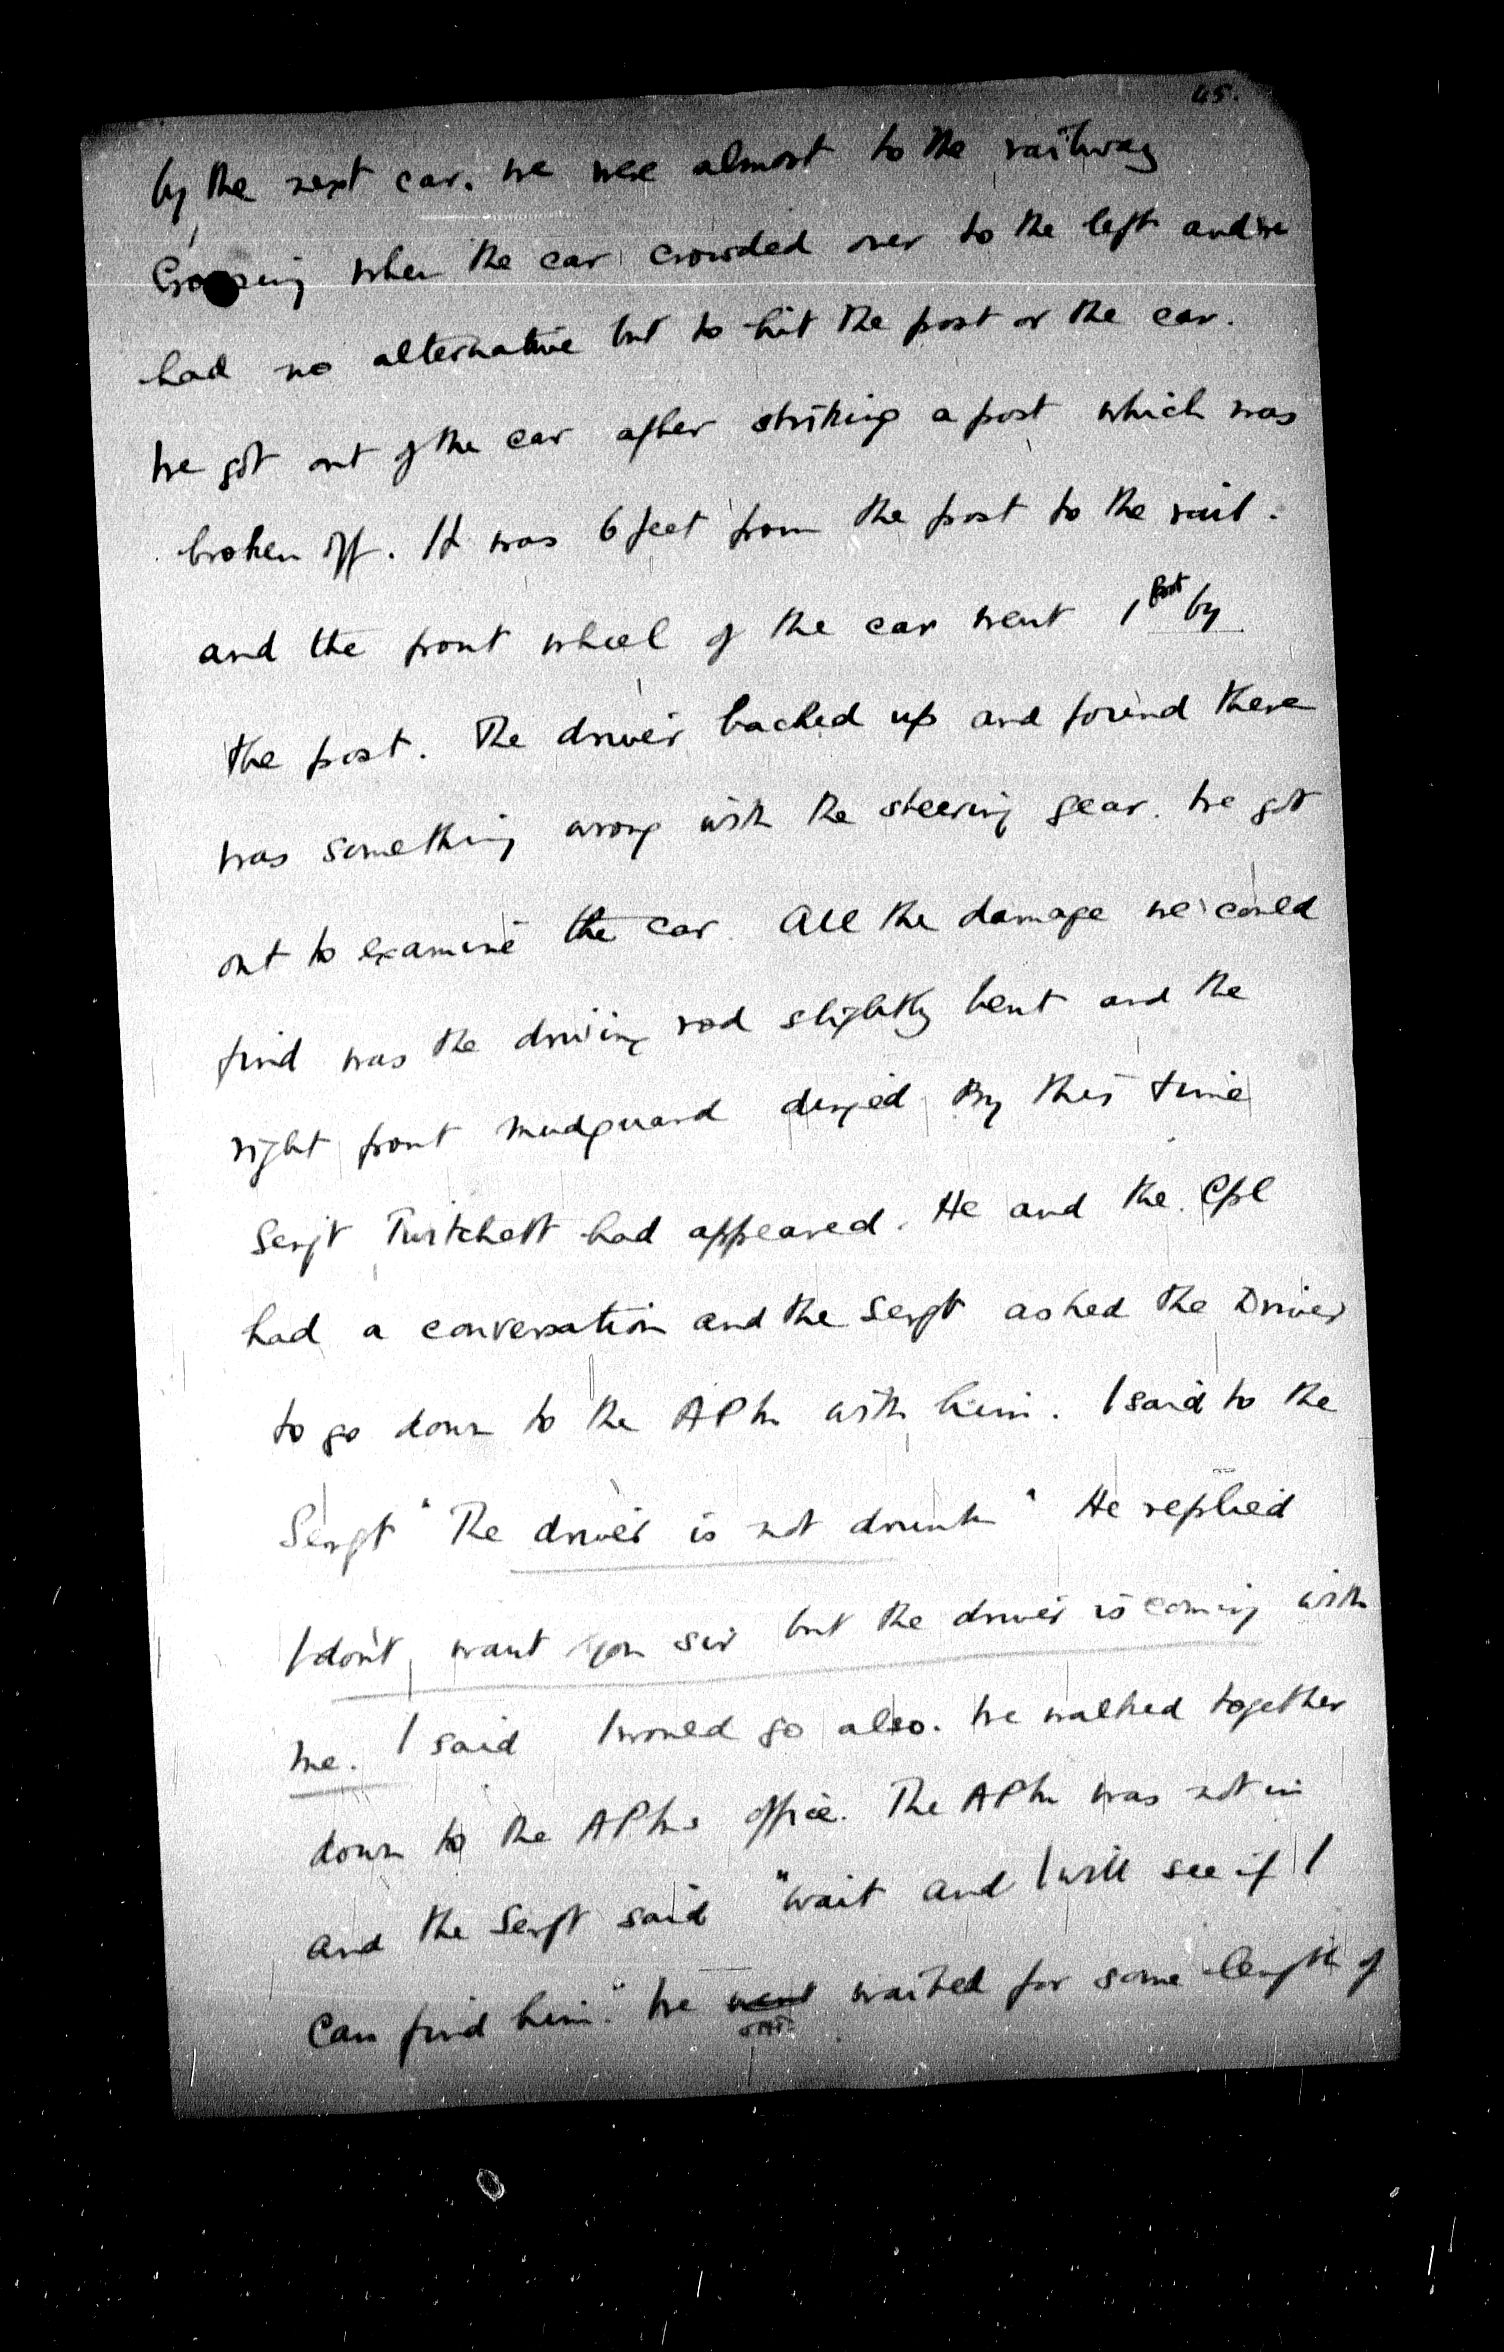 45.
by the next car. we were almost to the railway
Crossing when the car crowded over to the left and we
had no alternative but to hit the post or the car.
We got out of the car after striking a post which was
broken off. It was 6 feet from the post to the rail.
and the front wheel of the car went 1 foot by
the post. The driver backed up and found there
was something wrong with the steering gear. We got
out to examine the car. All the damage we could
find was the driving rod slightly bent and the
right front mudguard dinged. By this time
Sergt Twitchett had appeared. He and the Cpl
had a conversation and the Sergt asked the Driver
to go down to the APM with him. I said to the
Sergt "The driver is not drunk" He replied
I don't want you sir but the driver is coming with
me. I said I would go also. We walked together
down to the APMs office. The APM was not in
and the Sergt said "wait and I will see if I
can find him." We went waited for some length of